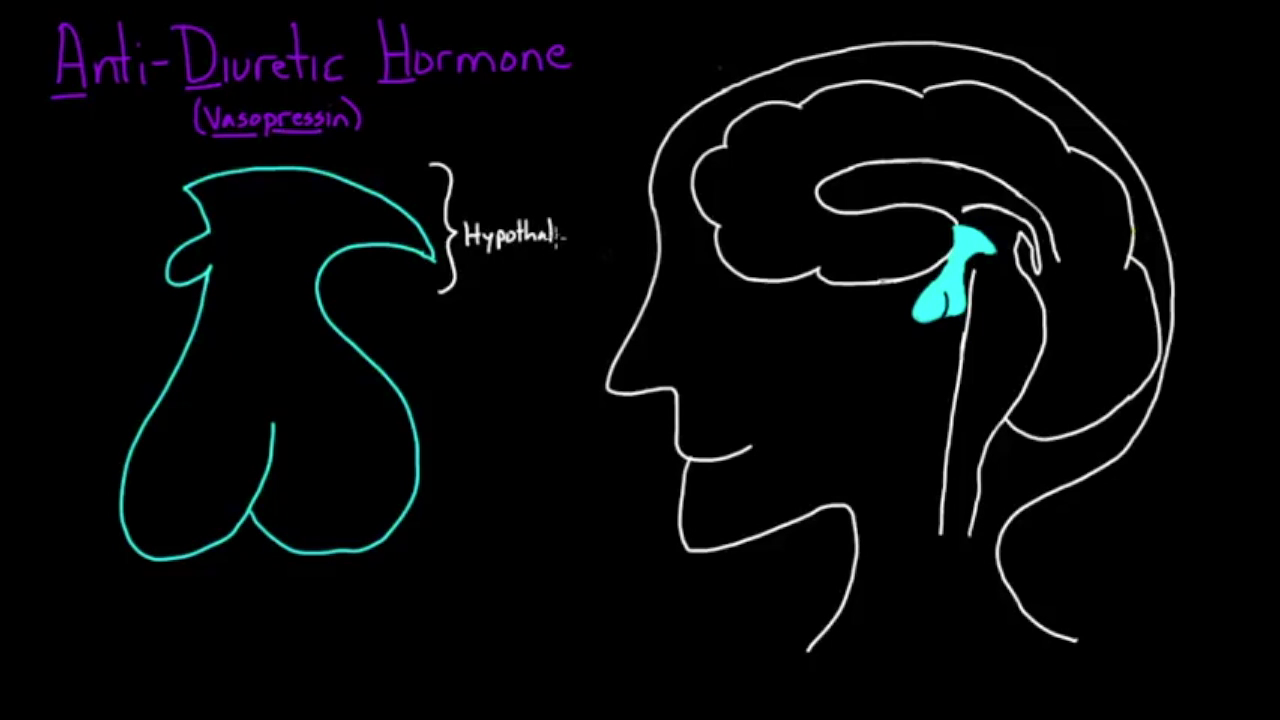 Anti-Diuretic Hormone
(Vasopressin)
Hypothal